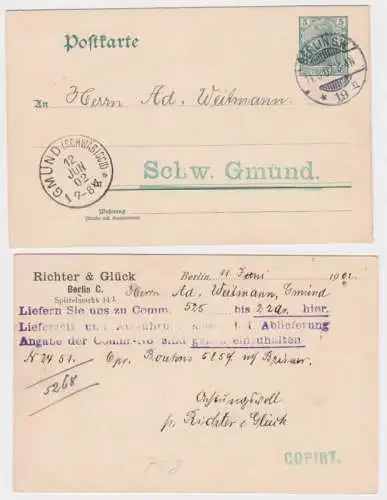 Postkarte
5
An Herrn Ad. Weitmann
GMÜND (SCHWÄBISCH)
12
JUN
02
7-8
Schw. Gmünd.
Wohnung
(Straße und Hausnummer)
Richter & Glück
Berlin C.
Spittelmarkt 14 I.
Berlin, 11 Juni 1902
Herrn Ad. Weitmann, Gmünd
Liefern Sie uns zu Comm. 525 bis 22a. hier.
Lieferzeit und bei Ablieferung
Angabe der Comm-No sind genau einzuhalten
N 2451.
5268
Achtungsvoll
p. Richter & Glück
COPIRT.